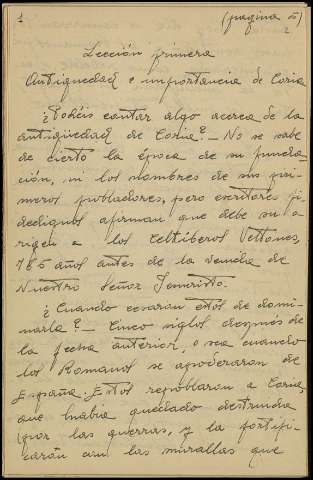 1 (pagina 5)
2
Lección primera
Antiguedad e importancia de Coria
¿Podéis contar algo acerca de la
antigüedad de Coria? - No se sabe
de cierto la época de su funda-
ción, ni los nombres de sus pri-
meros pobladores, pero escritores fi-
dedignos afirman que debe su o-
rigen a los Celtiberos Vettones,
765 años antes de la venida de
Nuestro Señor Jesucristo.
¿Cuando cesaron estos de domi-
narla? - Cinco siglos después de
la fecha anterior, o sea cuando
los Romanos se apoderaron de
España. Estos repoblaron a Coria,
que había quedado destruida
por las guerras, y la fortifi-
carón con las murallas que